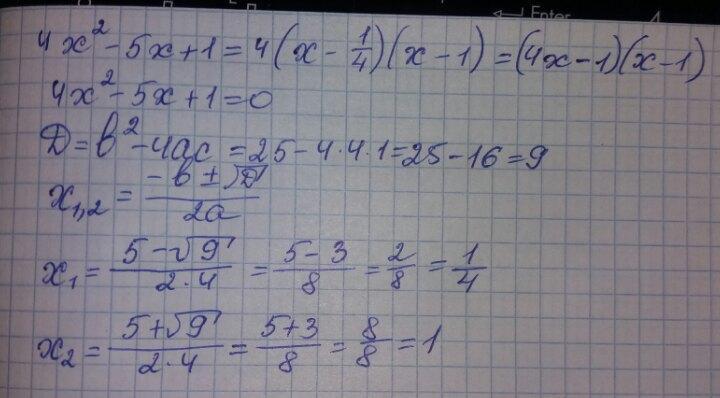 Enter
4x² - 5x + 1 = 4(x - 1/4)(x - 1) = (4x - 1)(x - 1)
4x² - 5x + 1 = 0
D = b² - 4ac = 25 - 4·4·1 = 25 - 16 = 9
x₁,₂ = (-b ± √D)/2a
x₁ = (5 - √9)/(2·4) = (5 - 3)/8 = 2/8 = 1/4
x₂ = (5 + √9)/(2·4) = (5 + 3)/8 = 8/8 = 1